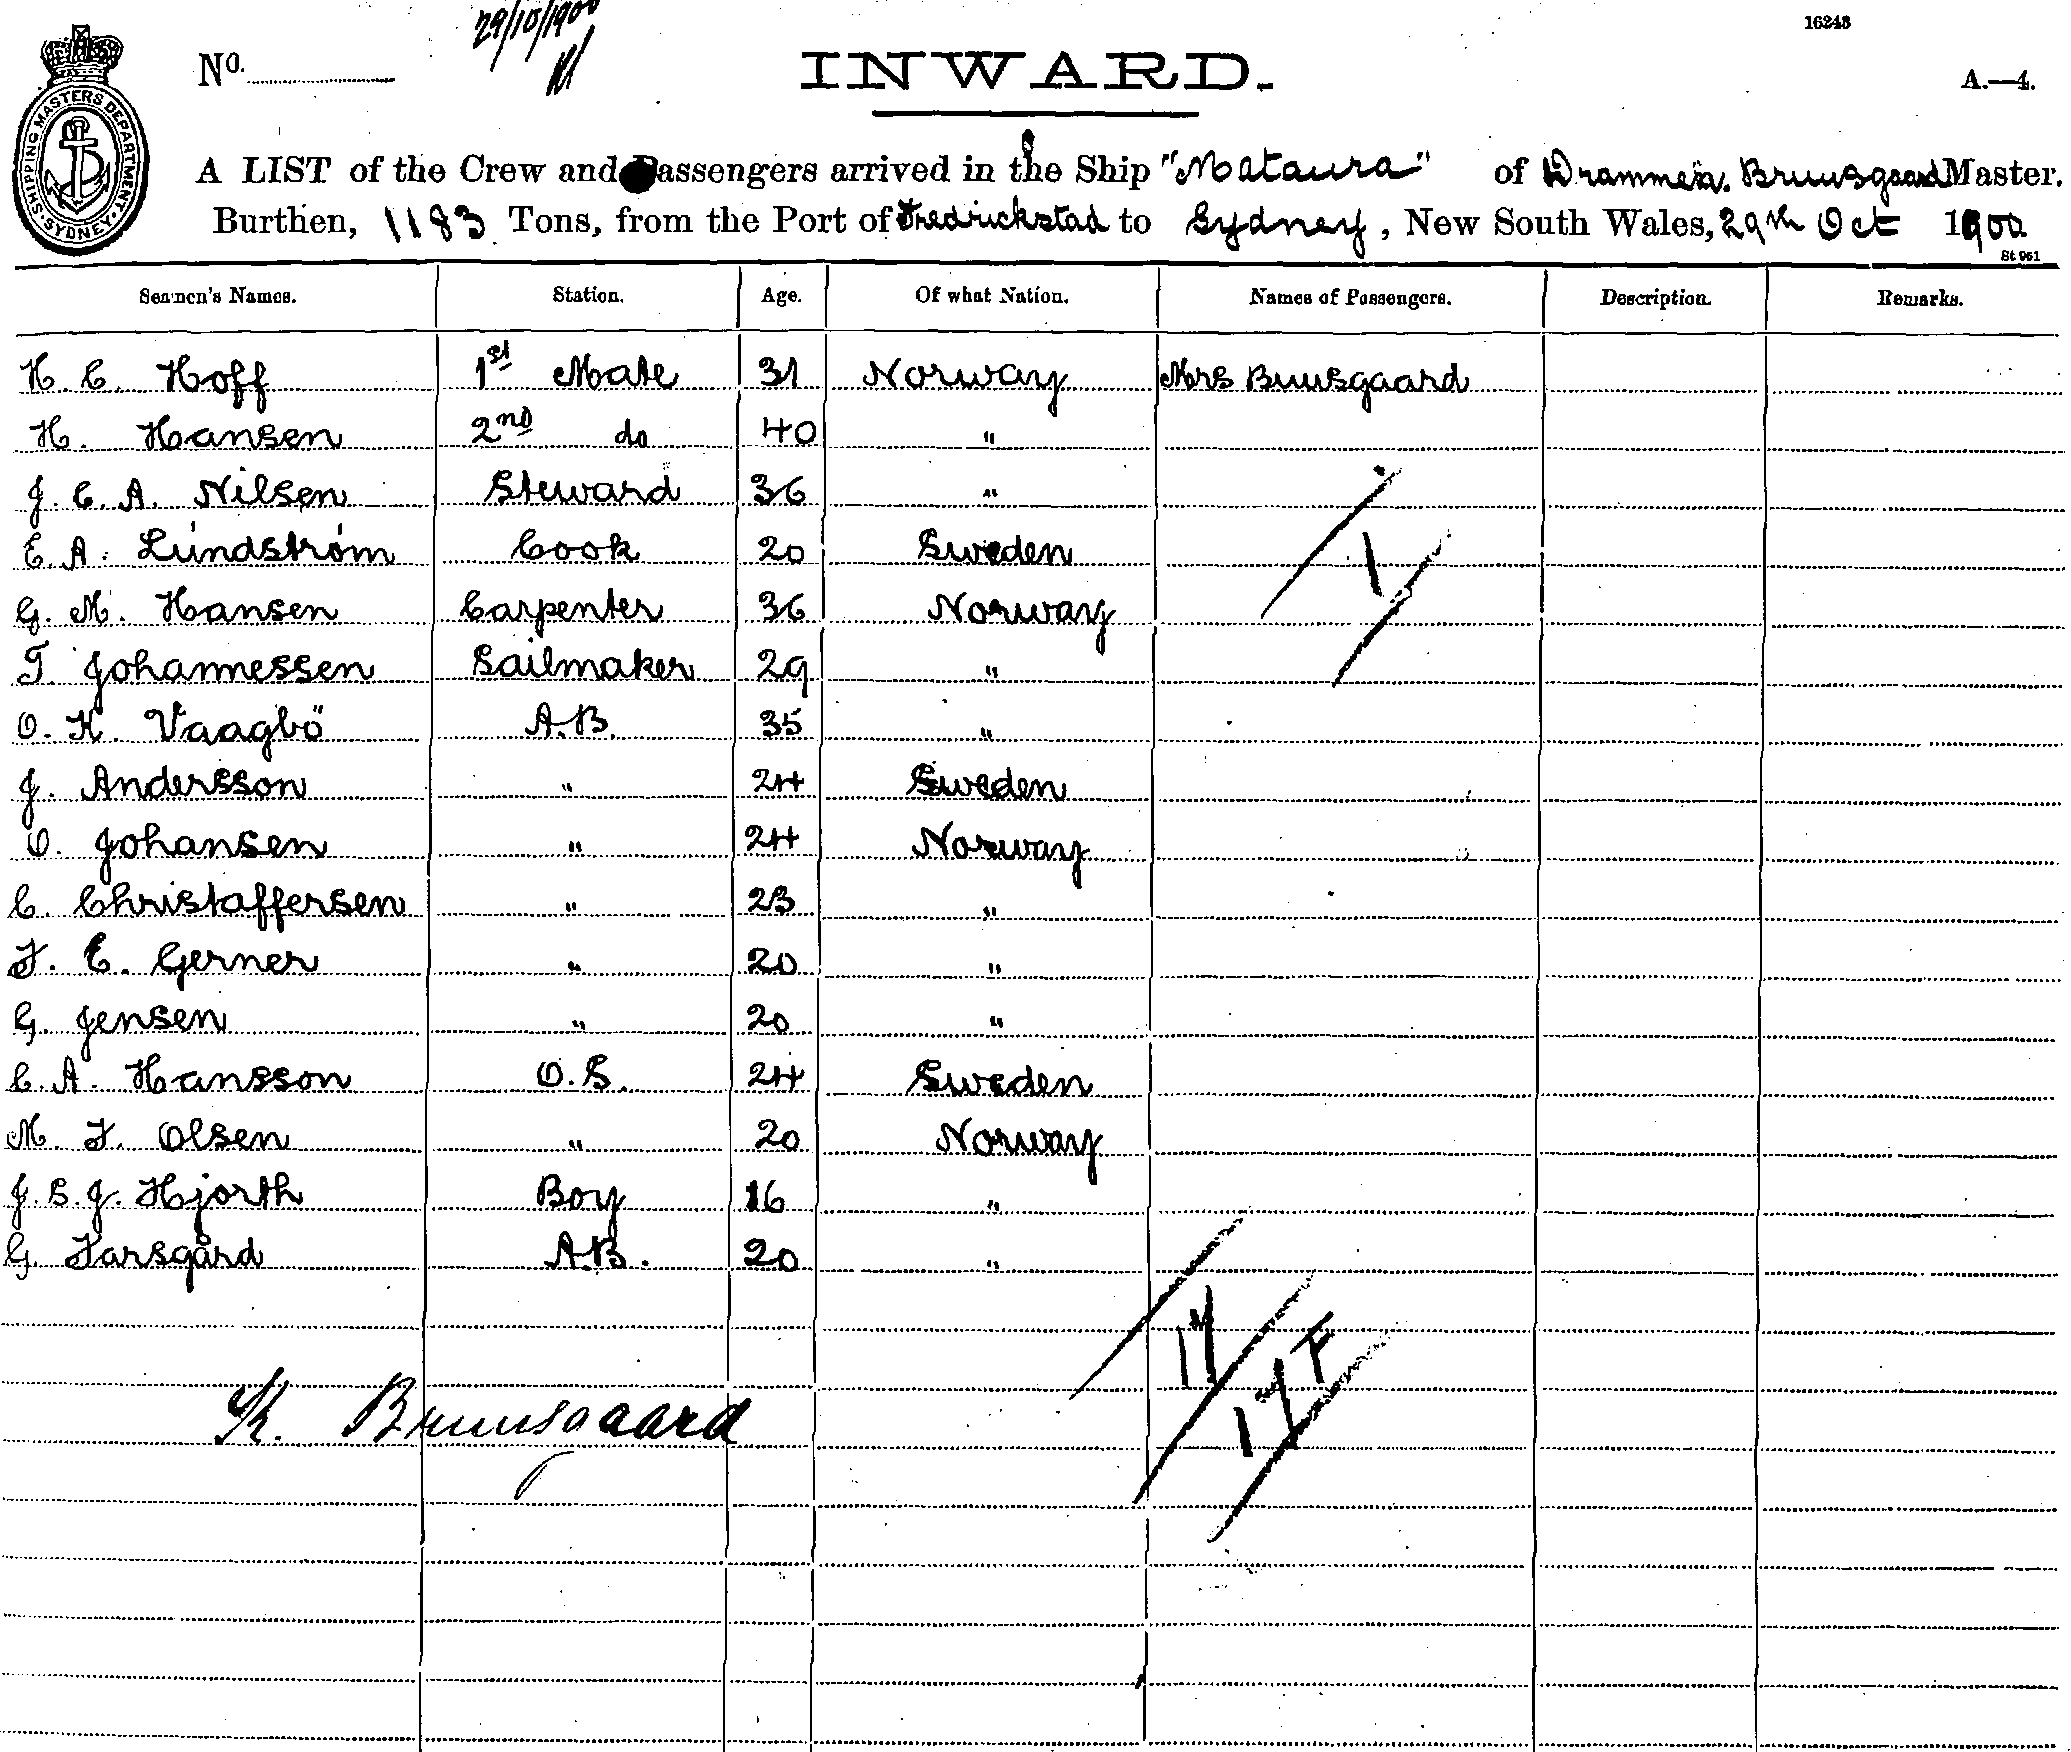 29/10/1900
16243
No.
INWARD.
A.—4.
SHIPPING MASTERS DEPARTMENT. SYDNEY.
A LIST of the Crew and Passengers arrived in the Ship "Mataura" of Drammen. Bruusgaard Master.
Burthen, 1183 Tons, from the Port of Fredrickstad to Sydney, New South Wales, 29th Oct 1900
St 961
Seamen's Names. Station. Age. Of what Nation. Names of Passengers. Description. Remarks.
H. C. Hoff 1st Mate 31 Norway Mrs Bruusgaard
H. Hansen 2nd do 40 "
J. C. A. Nilsen Steward 36 "
E. A. Lundstrøm Cook 20 Sweden
1
G. M. Hansen Carpenter 36 Norway
T. Johannessen Sailmaker 29 "
O. K. Vaagbö A.B. 35 "
J. Andersson " 24 Sweden
O. Johansen " 24 Norway
C. Christaffersen " 23 "
F. E. Gerner " 20 "
G. Jensen " 20 "
C. A. Hansson O.S. 24 Sweden
M. F. Olsen " 20 Norway
J. S. J. Hjorth Boy 16 "
G. Farsgård A.B. 20 "
17
17 F
K. Bruusgaard